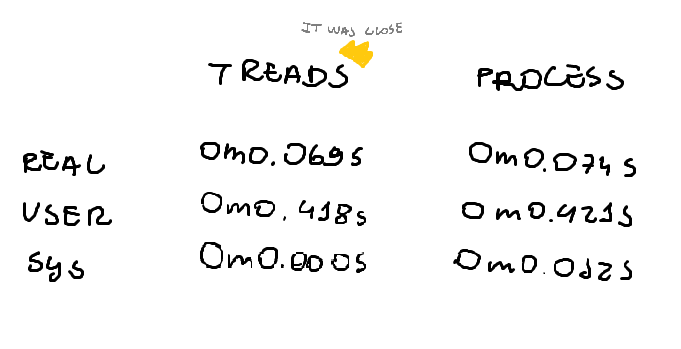 IT WAS CLOSE
TREADS PROCESS
REAL 0m0.069s 0m0.074s
USER 0m0.418s 0m0.421s
SYS 0m0.000s 0m0.012s